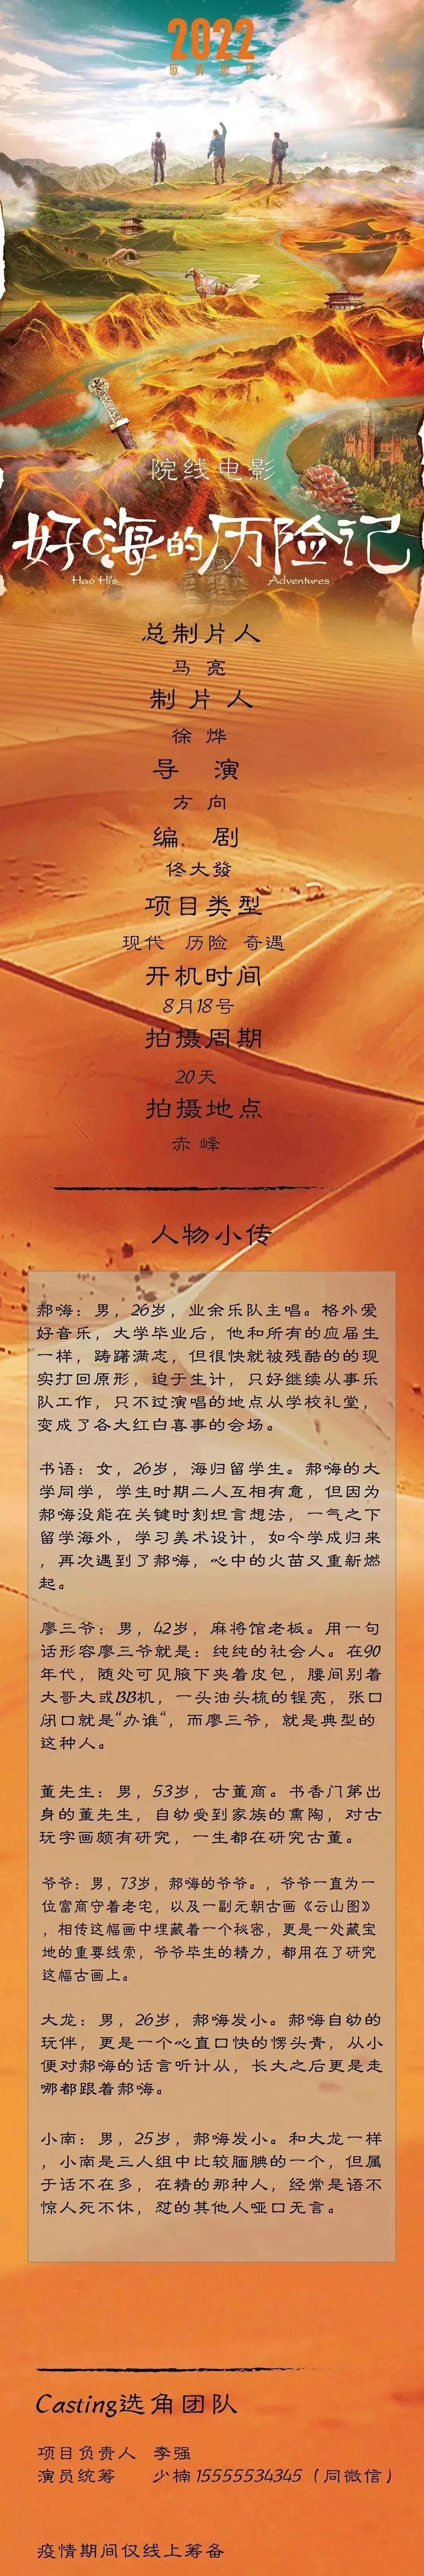 2022
敬请期待
院线电影
好嗨的历险记
Hao Hi's Adventures
总制片人
马 亮
制片人
徐 烨
导 演
方 向
编 剧
佟大發
项目类型
现代 历险 奇遇
开机时间
8月18号
拍摄周期
20天
拍摄地点
赤 峰
人物小传
郝嗨：男，26岁，业余乐队主唱。格外爱
好音乐，大学毕业后，他和所有的应届生
一样，踌躇满志，但很快就被残酷的的现
实打回原形，迫于生计，只好继续从事乐
队工作，只不过演唱的地点从学校礼堂，
变成了各大红白喜事的会场。
书语：女，26岁，海归留学生。郝嗨的大
学同学，学生时期二人互相有意，但因为
郝嗨没能在关键时刻坦言想法，一气之下
留学海外，学习美术设计，如今学成归来
，再次遇到了郝嗨，心中的火苗又重新燃
起。
廖三爷：男，42岁，麻将馆老板。用一句
话形容廖三爷就是：纯纯的社会人。在90
年代，随处可见腋下夹着皮包，腰间别着
大哥大或BB机，一头油头梳的锃亮，张口
闭口就是“办谁“，而廖三爷，就是典型的
这种人。
董先生：男，53岁，古董商。书香门第出
身的董先生，自幼受到家族的熏陶，对古
玩字画颇有研究，一生都在研究古董。
爷爷：男，73岁，郝嗨的爷爷。，爷爷一直为一
位富商守着老宅，以及一副元朝古画《云山图》
，相传这幅画中埋藏着一个秘密，更是一处藏宝
地的重要线索，爷爷毕生的精力，都用在了研究
这幅古画上。
大龙：男，26岁，郝嗨发小。郝嗨自幼的
玩伴，更是一个心直口快的愣头青，从小
便对郝嗨的话言听计从，长大之后更是走
哪都跟着郝嗨。
小南：男，25岁，郝嗨发小。和大龙一样
，小南是三人组中比较腼腆的一个，但属
于话不在多，在精的那种人，经常是语不
惊人死不休，怼的其他人哑口无言。
Casting选角团队
项目负责人 李强
演员统筹 少楠15555534345（同微信）
疫情期间仅线上筹备